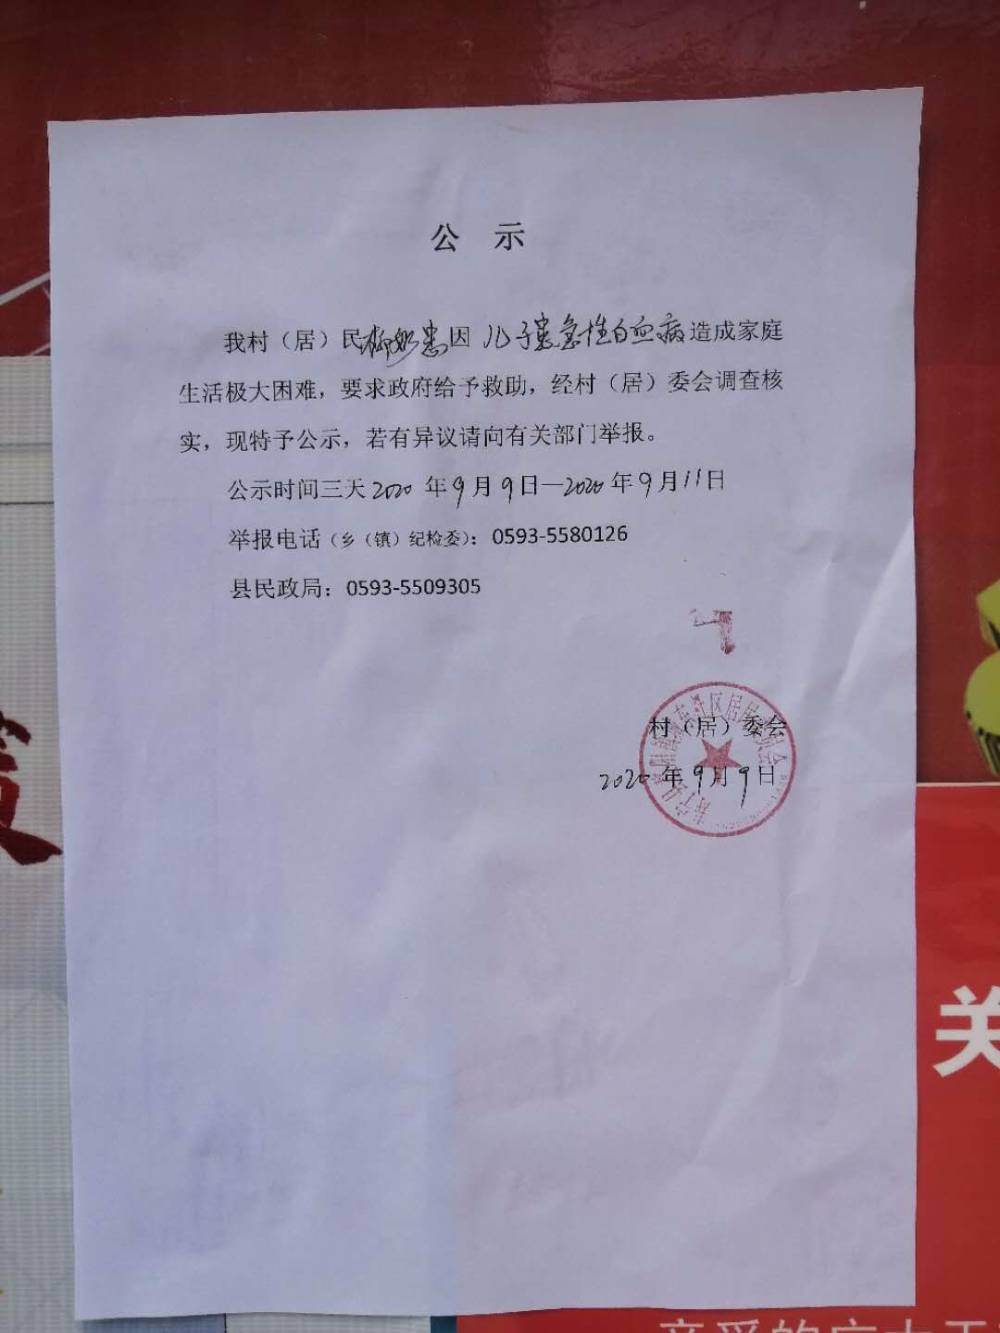 公 示
我村（居）民柳奶惠因儿子患急性白血病造成家庭
生活极大困难，要求政府给予救助，经村（居）委会调查核
实，现特予公示，若有异议请向有关部门举报。
公示时间三天2020年9月9日—2020年9月11日
举报电话（乡（镇）纪检委）：0593-5580126
县民政局：0593-5509305
村（居）委会
2020年9月9日
关